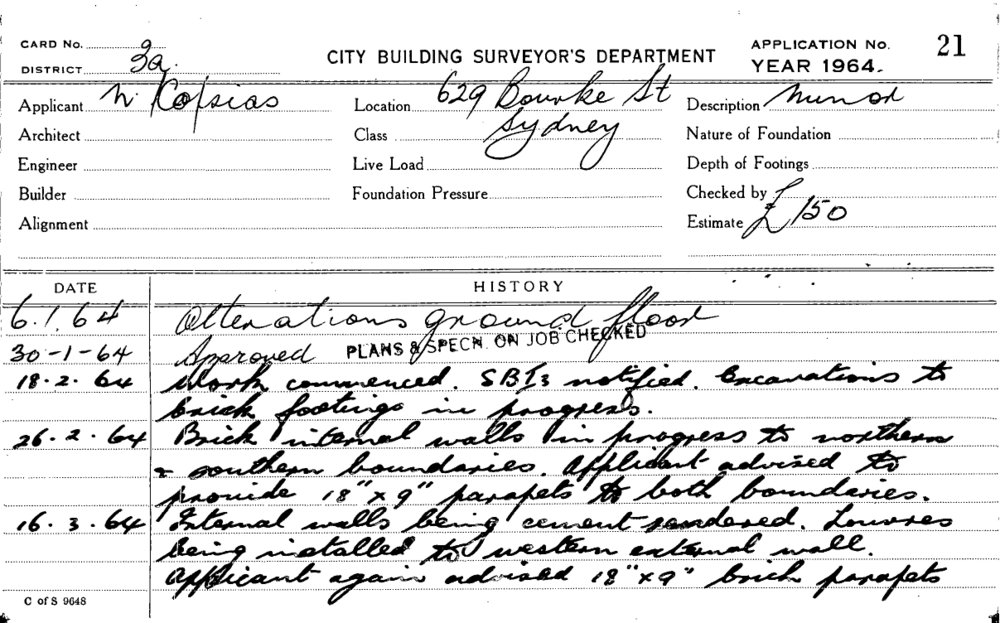 CARD No.
DISTRICT 3a.
CITY BUILDING SURVEYOR'S DEPARTMENT
APPLICATION No. 21
YEAR 1964.
Applicant N. Kopsias
Location 629 Bourke St
Sydney
Description Minor
Architect
Class
Nature of Foundation
Engineer
Live Load
Depth of Footings
Builder
Foundation Pressure
Checked by
Alignment
Estimate £150
DATE HISTORY
6.1.64 Alterations ground floor
30-1-64 Approved PLANS & SPECN. ON JOB CHECKED
18.2.64 Work commenced. SBI3 notified. Excavations to
brick footings in progress.
26.2.64 Brick internal walls in progress to northern
& southern boundaries. Applicant advised to
provide 18" x 9" parapets to both boundaries.
16.3.64 Internal walls being cement rendered. Louvres
being installed to western external wall.
Applicant again advised 18" x 9" brick parapets
C of S 9648